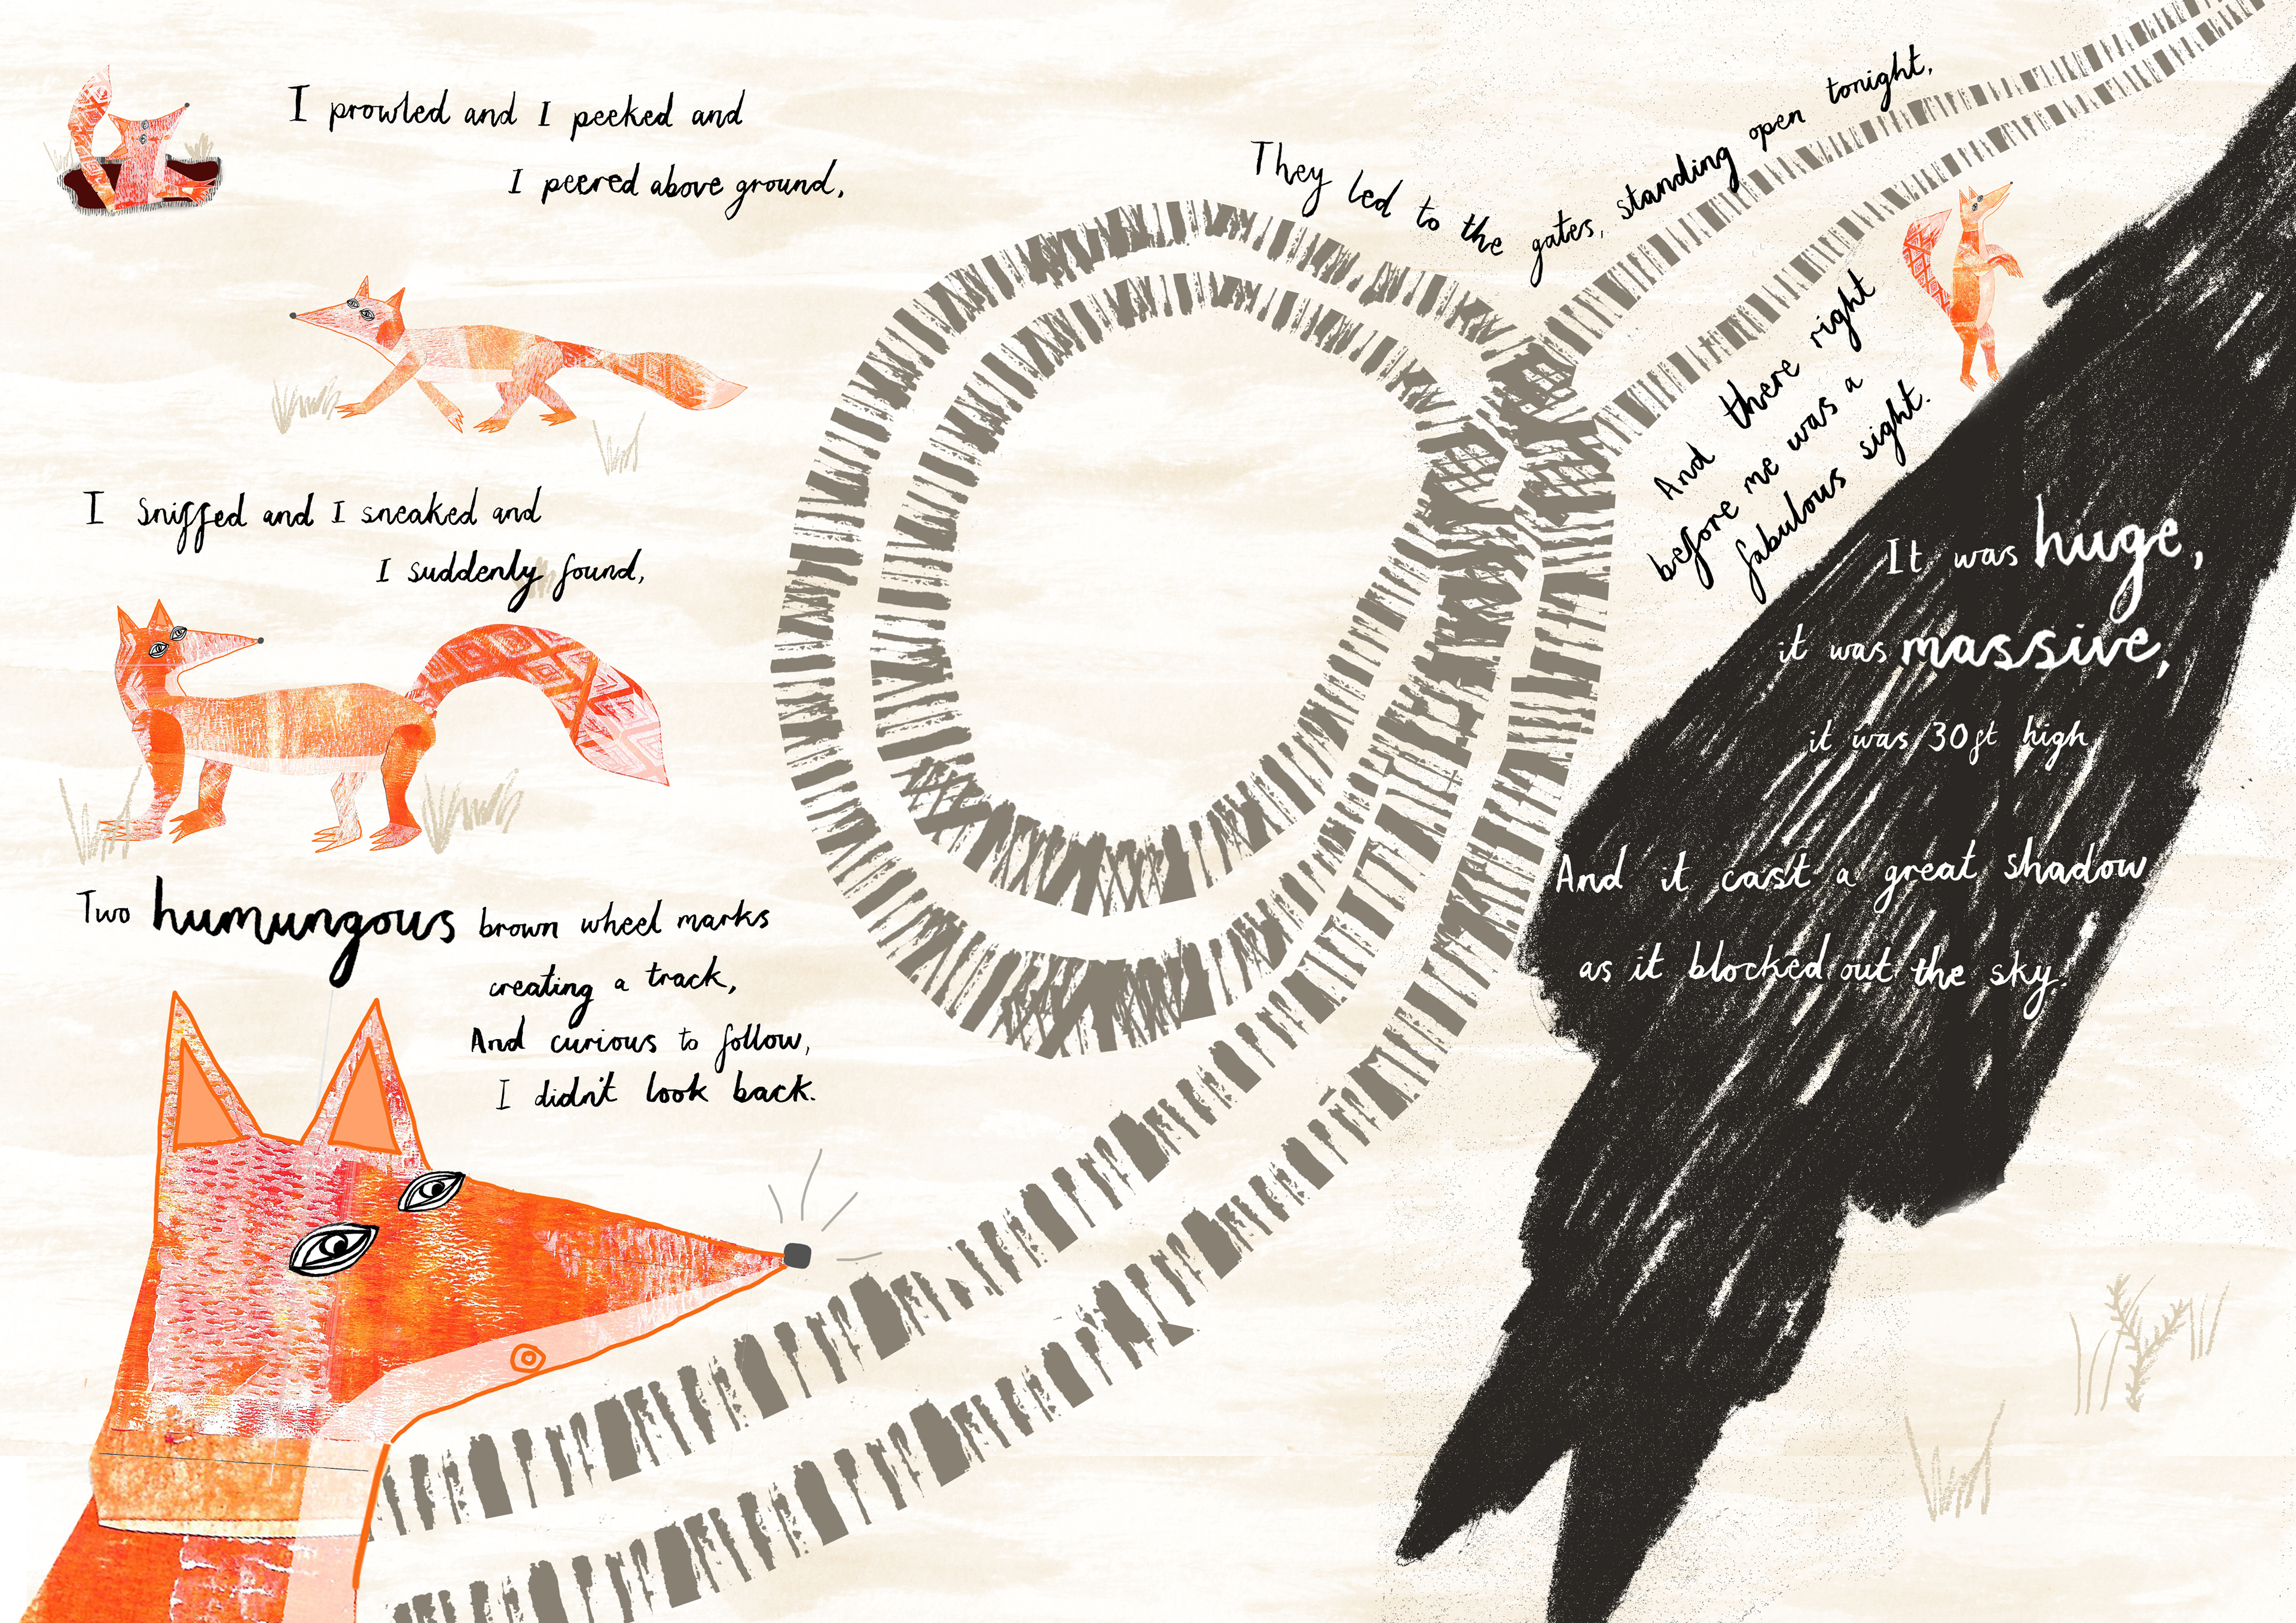 I prowled and I peeked and
I peered above ground,
I sniffed and I sneaked and
I suddenly found,
Two humungous brown wheel marks
creating a track,
And curious to follow,
I didn't look back.
They led to the gates, standing open tonight,
And there right
before me was a
fabulous sight.
It was huge,
it was massive,
it was 30ft high
And it cast a great shadow
as it blocked out the sky.